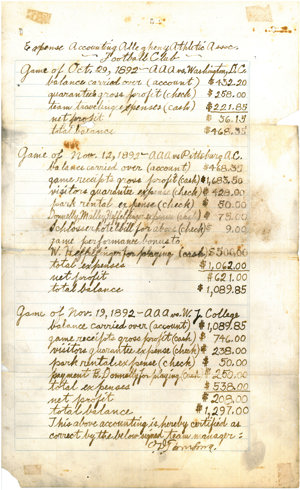 Expense Accounting Allegheny Athletic Assoc.
Football Club
Game of Oct. 29, 1892 - AAA vs. Washington, D.C.
balance carried over (account) $432.20
guarantee gross profit (check) $258.00
team traveling expenses (cash) $221.85
net profit $36.15
total balance $468.35
Game of Nov. 12, 1892 - AAA vs Pittsburg A.C.
balance carried over (account) $468.35
game receipts gross profit (cash) $1,683.50
visitors guarantee expense (check) $429.00
park rental expense (check) $50.00
Donnelly, Malley, Heffelfinger expenses (cash) $75.00
Schlosser hotel bill for above (check) $9.00
game performance bonus to
W. Heffelfinger for playing (cash) $500.00
total expenses $1,062.00
net profit $621.00
total balance $1,089.85
Game of Nov. 19, 1892 - AAA vs. W. J. College
balance carried over (account) $1,089.85
game receipts gross profit (cash) $746.00
visitors guarantee expense (check) $238.00
park rental expense (check) $50.00
payment B. Donnelly for playing (cash) $250.00
total expenses $538.00
net profit $208.00
total balance $1,297.00
This above accounting is hereby certified as
correct by the below signed team manager: